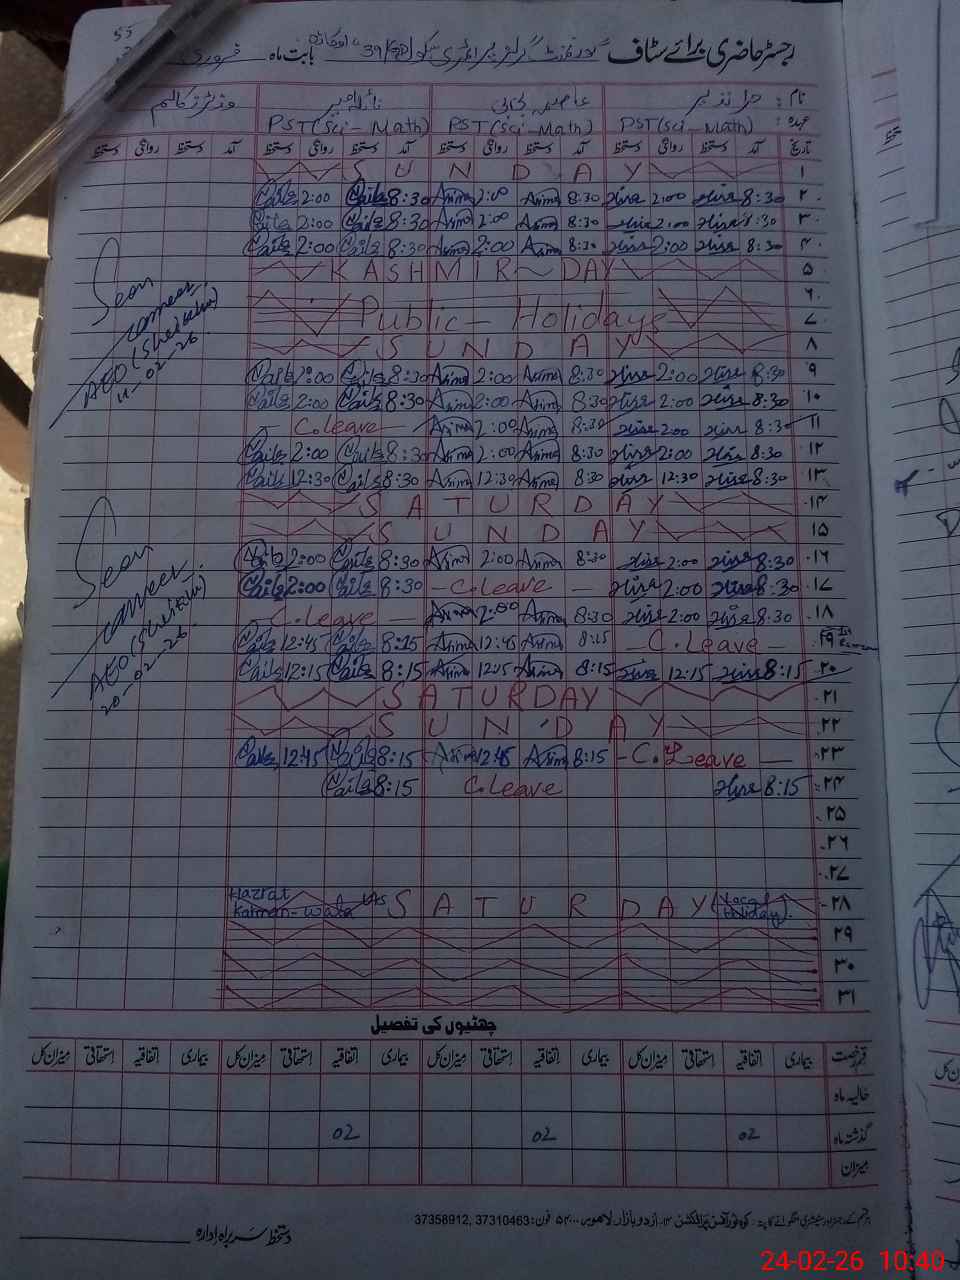 رجسٹر حاضری برائے سٹاف گورنمنٹ گرلز پرائمری سکول 39 اوکاڑہ بابت ماہ فروری
نام : عاصمہ وزیٹرز کالم
عہدہ : PST (Sci - Math) PST (Sci - Math) PST (Sci - Math)
تاریخ آمد دستخط روانگی دستخط آمد دستخط روانگی دستخط آمد دستخط روانگی دستخط آمد دستخط روانگی دستخط
۱ S U N D A Y
۲ 8:30 Hira 2:00 Hira 8:30 Asima 2:00 Asima 8:30 Naila 2:00 Naila
۳ 8:30 Hira 2:00 Hira 8:30 Asima 2:00 Asima 8:30 Naila 2:00 Naila
۴ 8:30 Hira 2:00 Hira 8:30 Asima 2:00 Asima 8:30 Naila 2:00 Naila
۵ KASHMIR DAY
۶
۷ Public - Holidays
۸ S U N D A Y
۹ 8:30 Hira 2:00 Hira 8:30 Asima 2:00 Asima 8:30 Naila 2:00 Naila
۱۰ 8:30 Hira 2:00 Hira 8:30 Asima 2:00 Asima 8:30 Naila 2:00 Naila
۱۱ 8:30 Hira 2:00 Hira 8:30 Asima 2:00 Asima C.leave
۱۲ 8:30 Hira 2:00 Hira 8:30 Asima 2:00 Asima 8:30 Naila 2:00 Naila
۱۳ 8:30 Hira 12:30 Hira 8:30 Asima 12:30 Asima 8:30 Naila 12:30 Naila
۱۴ S A T U R D A Y
۱۵ S U N D A Y
۱۶ 8:30 Hira 2:00 Hira 8:30 Asima 2:00 Asima 8:30 Naila 2:00 Naila
۱۷ 8:30 Hira 2:00 Hira - C.Leave - 8:30 Naila 2:00 Naila
۱۸ 8:30 Hira 2:00 Hira 8:30 Asima 2:00 Asima C.Leave
۱۹ - C.Leave - 8:15 Asima 12:45 Asima 8:15 Naila 12:45 Naila
۲۰ 8:15 Hira 12:15 Hira 8:15 Asima 12:15 Asima 8:15 Naila 12:15 Naila
۲۱ SATURDAY
۲۲ S U N D A Y
۲۳ - C.Leave - 8:15 Asima 12:45 Asima 8:15 Naila 12:45 Naila
۲۴ 8:15 Hira C.Leave 8:15 Naila
۲۵
۲۶
۲۷
۲۸ Hazrat Karman-wala S A T U R D A Y (Local Holiday)
۲۹
۳۰
۳۱
AEO (Sheikhu)
11-02-26
AEO (Sheikhu)
20-02-26
چھٹیوں کی تفصیل
قسم رخصت بیماری اتفاقیہ استحقاقی میزان کل بیماری اتفاقیہ استحقاقی میزان کل بیماری اتفاقیہ استحقاقی میزان کل بیماری اتفاقیہ استحقاقی میزان کل
حالیہ ماہ
گذشتہ ماہ 02 02 02
میزان
اردو بازار لاہور۔ ۵۴۰۰۰ فون: 37310463, 37358912
دستخط سربراہ ادارہ
24-02-26 10:40